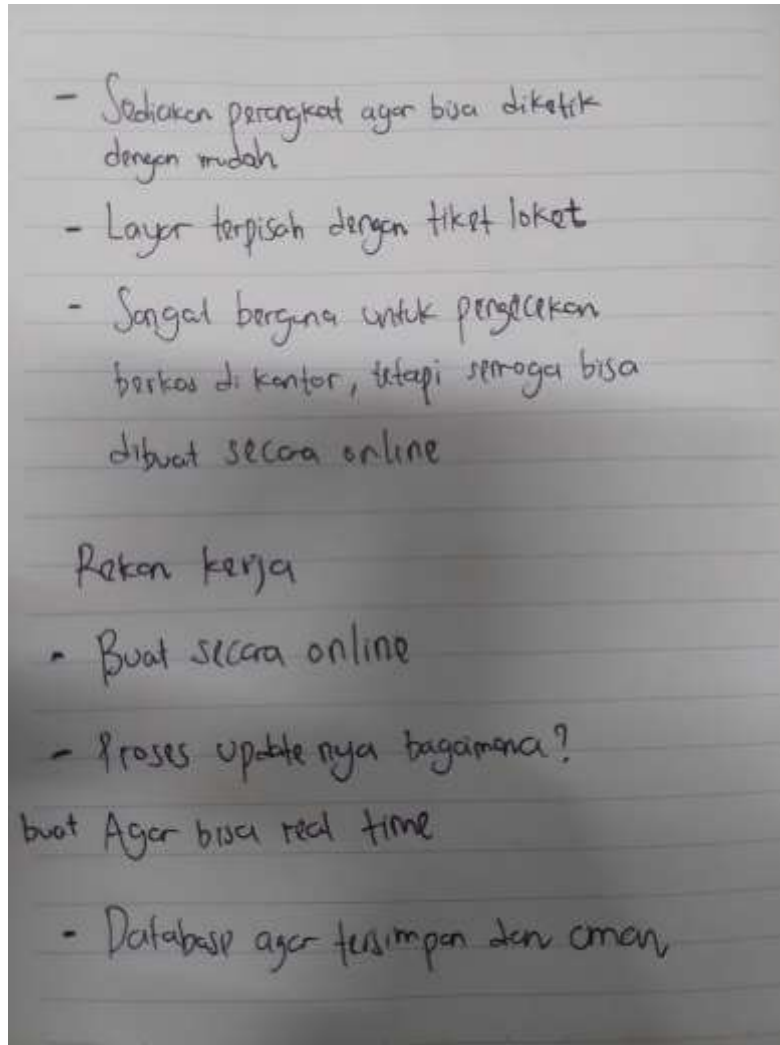 - Sediakan perangkat agar bisa diketik
dengan mudah
- Layar terpisah dengan tiket loket
- Sangat berguna untuk pengecekan
berkas di kantor, tetapi semoga bisa
dibuat secara online
Rekan kerja
- Buat secara online
- Proses update nya bagaimana?
buat Agar bisa real time
- Database agar tersimpan dan aman